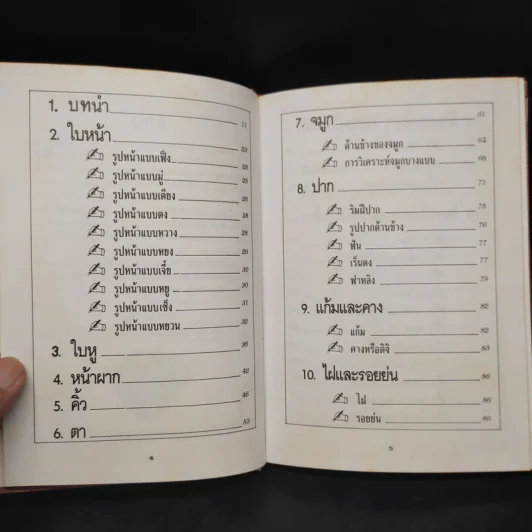 1. บทนำ 11
2. ใบหน้า 23
รูปหน้าแบบเฟิ่ง 25
รูปหน้าแบบมู่ 25
รูปหน้าแบบเตียง 26
รูปหน้าแบบตง 28
รูปหน้าแบบหวาง 28
รูปหน้าแบบหยง 29
รูปหน้าแบบเจี๋ย 30
รูปหน้าแบบหยู 30
รูปหน้าแบบเซ็ง 31
รูปหน้าแบบหยวน 32
3. ใบหู 36
4. หน้าผาก 42
5. คิ้ว 46
6. ตา 53
4
7. จมูก 61
ด้านข้างของจมูก 67
การวิเคราะห์จมูกบางแบบ 68
8. ปาก 71
ริมฝีปาก 75
รูปปากด้านข้าง 76
ฟัน 77
เร็นตง 77
ฟาหลิง 79
9. แก้มและคาง 82
แก้ม 82
คางหรือติจิ 83
10. ไฝและรอยย่น 86
ไฝ 86
รอยย่น 86
5